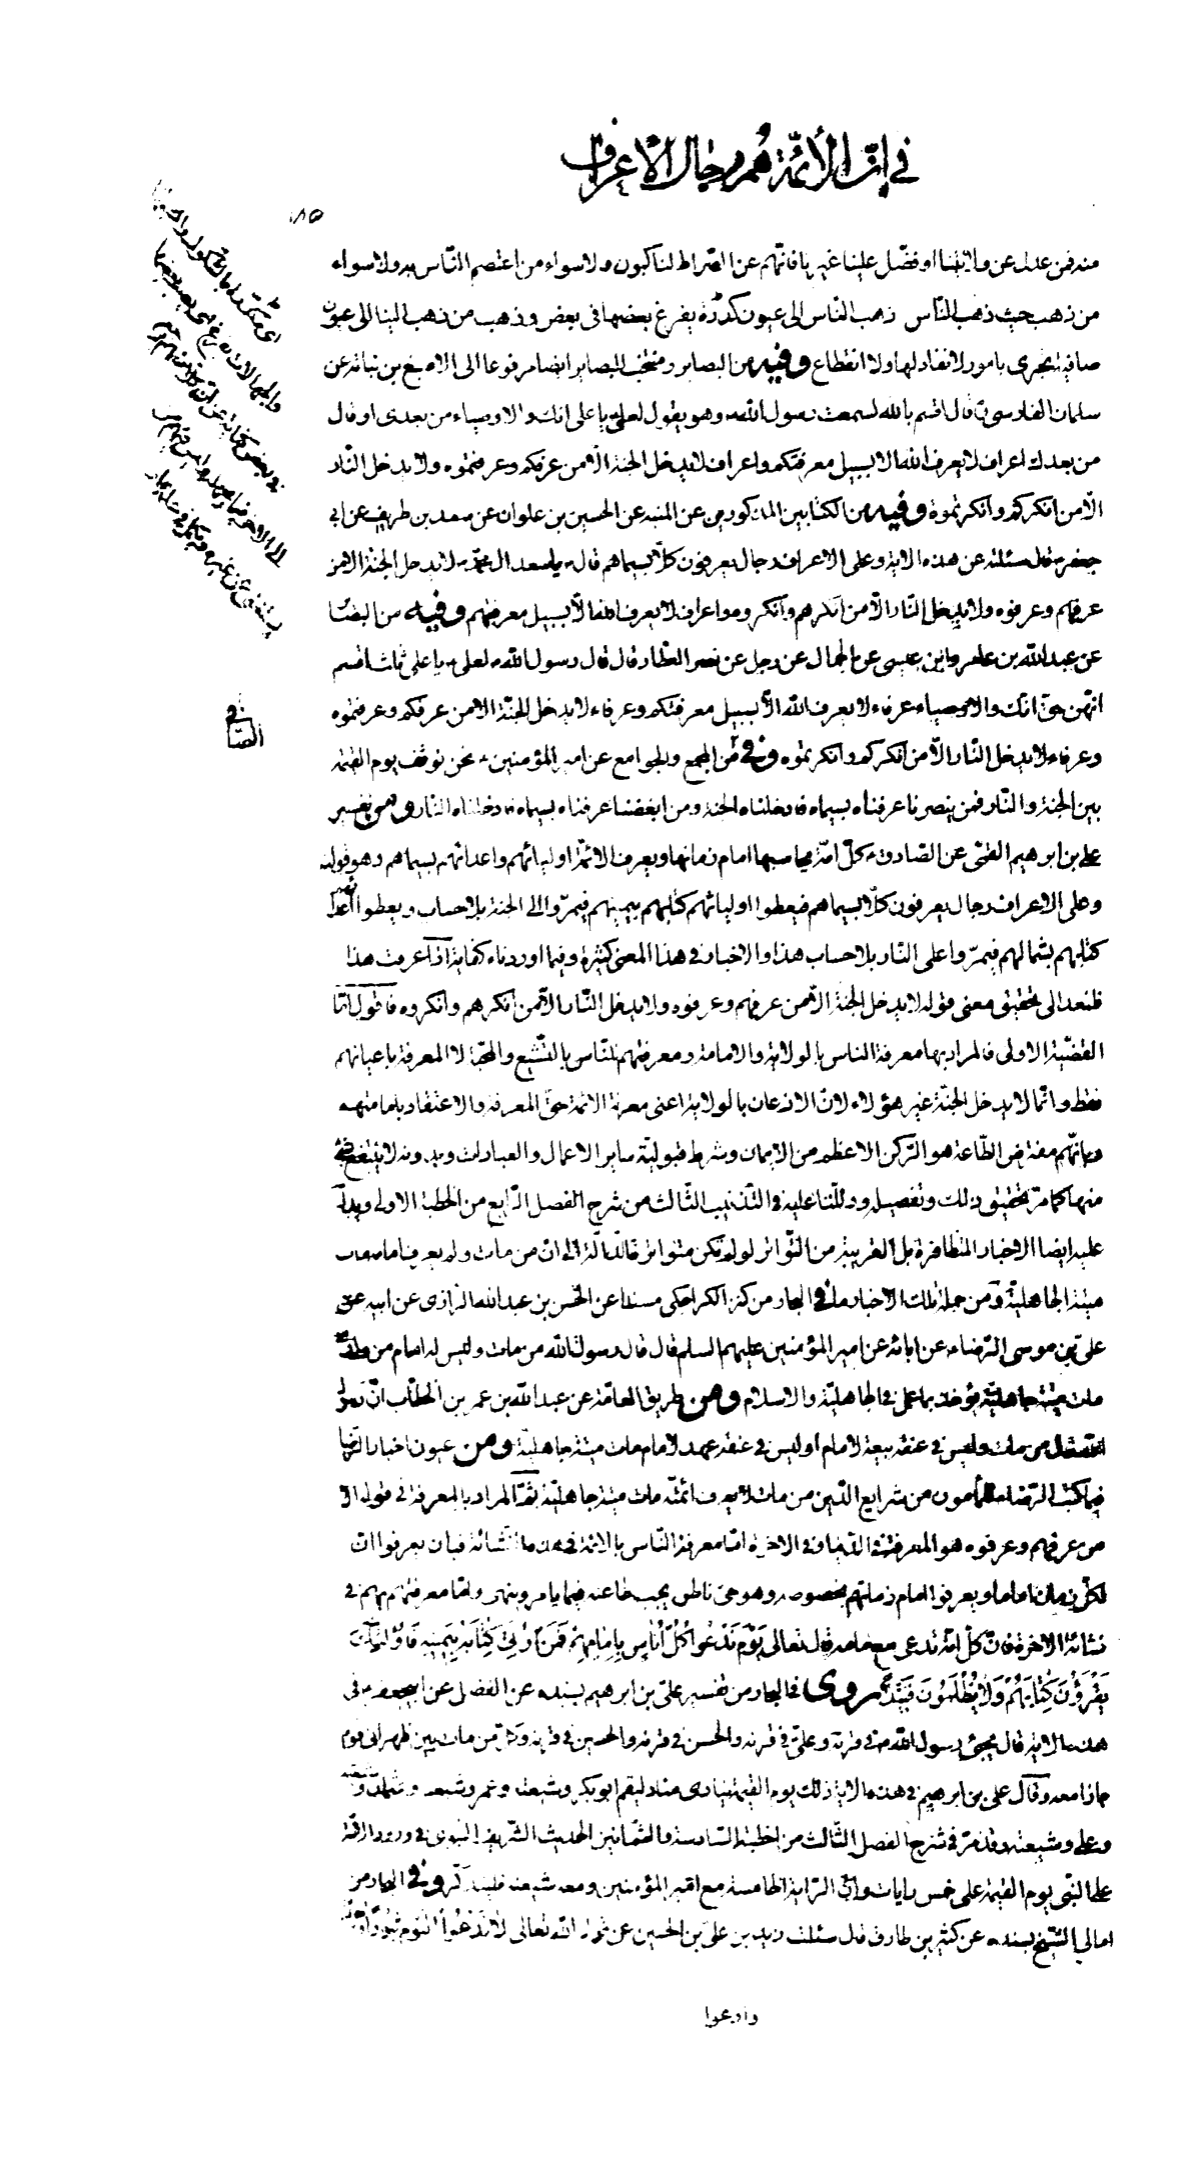 في انّ الأئمّة هم رجال الاعراف
منه فمن عدل عن ولايتنا او فضّل علينا غيرنا فانّهم عن الصّراط لناكبون ولا سواء من اعتصم النّاس به ولا سواء
من ذهب حيث ذهب النّاس ذهب النّاس الى عيون كدرة يفرغ بعضها في بعض وذهب من ذهب الينا الى عيون
صافية تجرى بامور لا نفاد لها ولا انقطاع وفيه من البصاير ومنتخب البصاير ايضا مرفوعا الى الاصبغ بن نباتة عن
سلمان الفارسي قال اقسم بالله لسمعت رسول الله وهو يقول لعلي يا علي انك والاوصياء من بعدى او قال
من بعدك اعراف لا يعرف الله الا بسبيل معرفتكم واعراف لا يدخل الجنة الّا من عرفكم وعرفتموه ولا يدخل النّار
الّا من انكركم وانكرتموه وفيه من الكتابين المذكورين عن المنبه عن الحسين بن علوان عن سعد بن طريف عن ابي
جعفر قال سئلته عن هذه الاية وعلى الاعراف رجال يعرفون كلّا بسيماهم قال يا سعد ال محمّد لا يدخل الجنة الا من
عرفهم وعرفوه ولا يدخل النّار الّا من انكرهم وانكروه واعراف لا يعرف الله الّا بسبيل معرفتهم وفيه من البصاير
عن عبد الله بن عامر وابن عيسى عن الجمال عن رجل عن نصر العطار قال قال رسول الله لعلي يا علي ثلاث اقسم
انّهن حقّ انك والاوصياء عرفاء لا يعرف الله الّا بسبيل معرفتكم وعرفاء لا يدخل الجنّة الا من عرفكم وعرفتموه
وعرفاء لا يدخل النّار الّا من انكركم وانكرتموه وفي من المجمع والجوامع عن امير المؤمنين نحن نوقف يوم القيمة
بين الجنة والنّار فمن ينصرنا عرفناه بسيماه فادخلناه الجنة ومن ابغضنا عرفناه بسيماه فادخلناه النار ومن تفسير
علي بن ابرهيم القمّي عن الصّادق كلّ امّة يحاسبها امام زمانها ويعرف الائمّة اوليائهم واعدائهم بسيماهم وهو قوله
وعلى الاعراف رجال يعرفون كلّا بسيماهم فيعطوا اوليائهم كتابهم بيمينهم فيمرّوا الى الجنة بلا حساب ويعطوا اعدائهم
كتابهم بشمالهم فيمرّوا على النّار بلا حساب هذا والاخبار في هذا المعنى كثيرة وفيما اوردناه كفاية اذا عرفت هذا
فلنعد الى تحقيق معنى قوله لا يدخل الجنّة الّا من عرفهم وعرفوه ولا يدخل النّار الّا من انكرهم وانكروه فاقول امّا
القضيّة الاولى فالمراد بها معرفة الناس بالولاية والامامة ومعرفتهم للنّاس بالتّشيع والمحبّة لا المعرفة باعيانهم
فقط وانّما لا يدخل الجنّة غير هؤلاء لانّ الاذعان بالولاية اعنى معرفة الائمة حقّ المعرفة والاعتقاد بامامتهم
وبانّهم مفترض الطّاعة هو الرّكن الاعظم من الايمان وشرط قبوليّة ساير الاعمال والعبادات وبدونه لا ينتفع بشيء
منها كما مرّ تحقيق ذلك وتفصيله ودلّلنا عليه في التّذنيب الثّالث من شرح الفصل الرّابع من الخطبة الاولى ويدلّ
عليه ايضا الاخبار المتظافرة بل القريبة من التّواتر لو لم تكن متواتر فالدّالّة الى ان من مات ولم يعرف امامه مات
ميتة الجاهليّة ومن جملة تلك الاخبار ما في البحار من كنز الكراجكى مسندا عن الحسن بن عبد الله الرّازى عن ابيه عن
علي بن موسى الرّضا عن ابائه عن امير المؤمنين عليهم السلم قال قال رسول الله من مات وليس له امام من ولدى
مات ميتة جاهليّة يؤخذ بما عمل في الجاهليّة والاسلام ومن طريق العامّة عن عبد الله بن عمر بن الخطّاب انّ رسول
الله قال من مات وليس في عنقه بيعة لامام او ليس في عنقه عهد لامام مات ميتة جاهليّة ومن عيون اخبار الرّضا
فيما كتب الرّضا للمأمون من شرايع الدّين من مات لا يعرف ائمّته مات ميتة جاهليّة ثمّ المراد بالمعرفة في قوله الّا
من عرفهم وعرفوه هو المعرفة في الدّنيا وفي الاخرة امّا معرفة النّاس بالائمة في هذه النّشأة فبان يعرفوا انّ
لكلّ زمان اماما ويعرفوا امام زمانهم بخصوصه وهو حىّ ناطق يجب طاعته فيما يامر وينهى وامّا معرفتهم بهم في
نشأة الاخرة فانّ كلّ امّة تدعى مع امامه قال تعالى يَوْمَ نَدْعُوا كُلَّ أُناسٍ بِإِمامِهِمْ فَمَنْ أُوتِيَ كِتابَهُ بِيَمِينِهِ فَأُولئِكَ
يَقْرَؤُنَ كِتابَهُمْ وَلا يُظْلَمُونَ فَتِيلًا روى في البحار من تفسير عليّ بن ابرهيم بسنده عن الفضل عن ابيجعفر في
هذه الاية قال يجيئ رسول الله في قرنه وعليّ في قرنه والحسن في قرنه والحسين في قرنه وكلّ من مات بين ظهراني قوم
جاؤا معه وقال علي بن ابرهيم في هذه الاية ذلك يوم القيمة ينادى مناد ليقم ابو بكر وشيعته وعمر وشيعته وعثمان وشيعته
وعلي وشيعته وقد مرّ في شرح الفصل الثّالث من الخطبة السّادسة والثّمانين الحديث الشّريف النبوى في ورود الامّة
على النّبي يوم القيمة على خمس رايات وانّ الرّاية الخامسة مع امير المؤمنين ومعه شيعته فليتذكّر وفي البحار من
امالي الشيخ بسنده عن كثير بن طارق قال سئلت زيد بن عليّ بن الحسين عن قول الله تعالى لا تَدْعُوا الْيَوْمَ ثُبُوراً
وادعوا